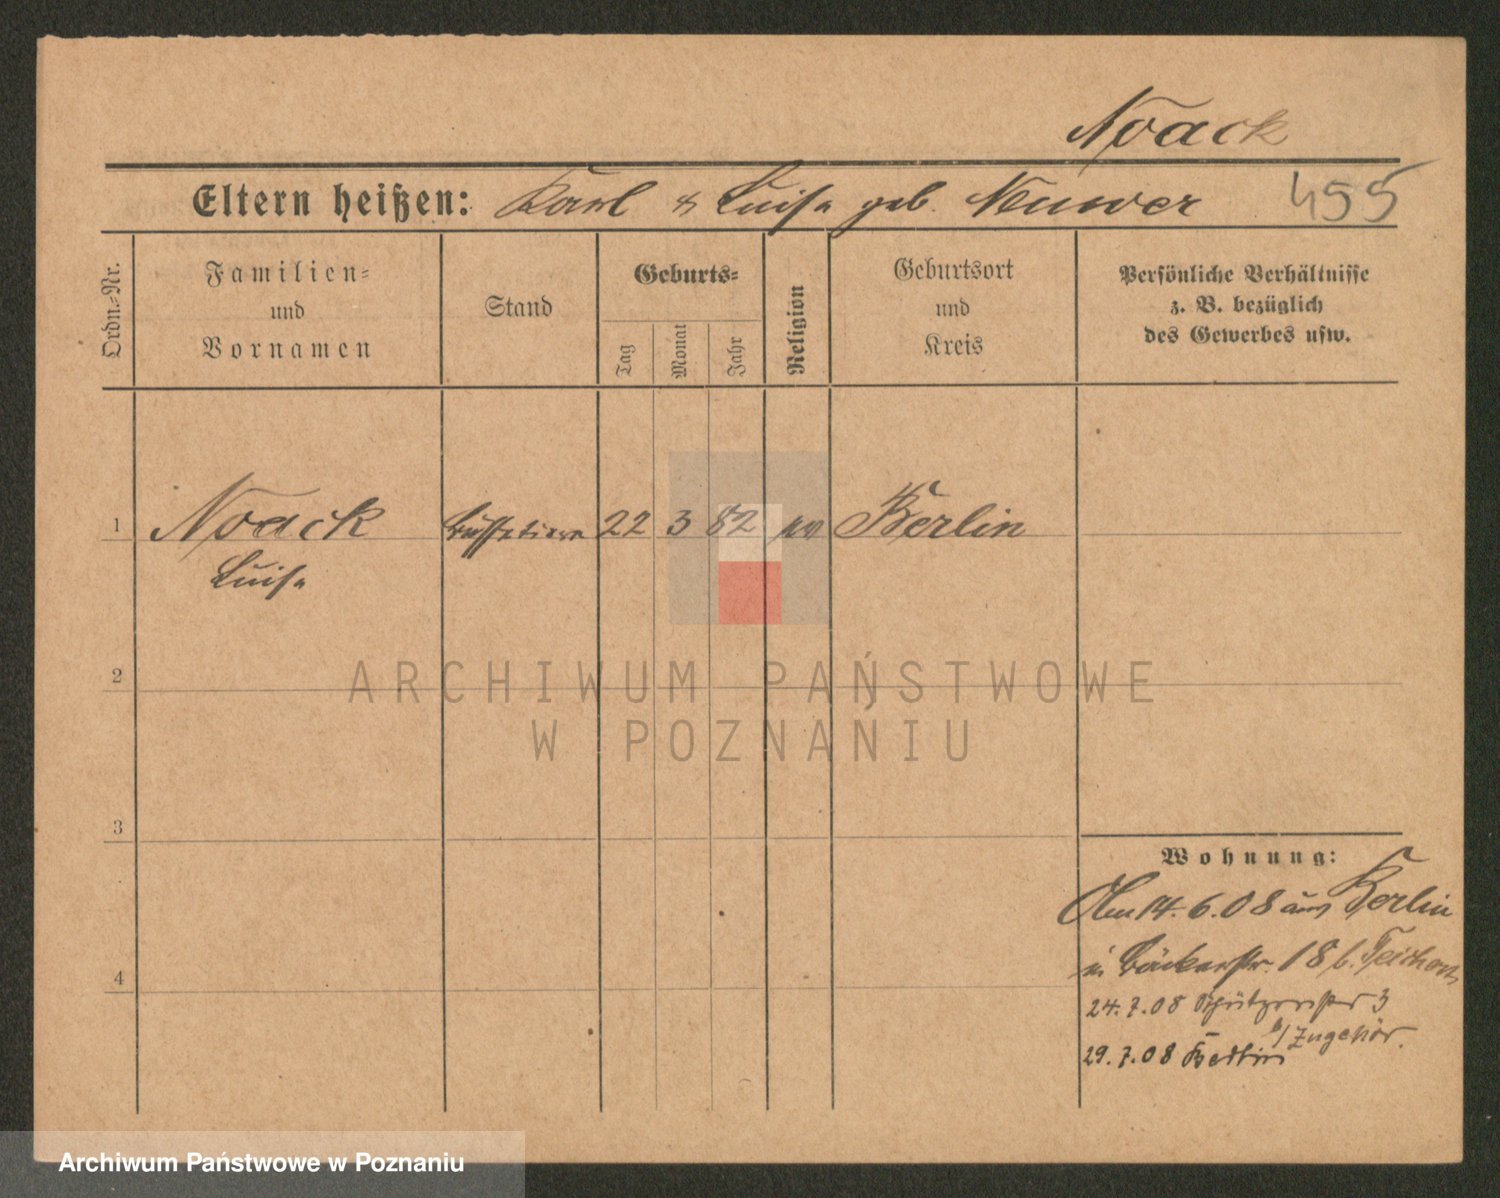 Noack
Eltern heißen: Karl & Luise geb. Neuwer 455
Ordn.-Nr.
Familien-
und
Vornamen
Stand
Geburts-
Tag
Monat
Jahr
Religion
Geburtsort
und
Kreis
Persönliche Verhältnisse
z. B. bezüglich
des Gewerbes usw.
1 Noack Büffetiere 22 3 82 ev Berlin
Luise
2
ARCHIWUM PAŃSTWOWE
W POZNANIU
3
Wohnung:
14.6.08 aus Berlin
Bäckerstr. 18 b. Teichert
4
24.7.08 Schützenstr 3
b/ Zugehör.
29.7.08 Berlin
Archiwum Państwowe w Poznaniu